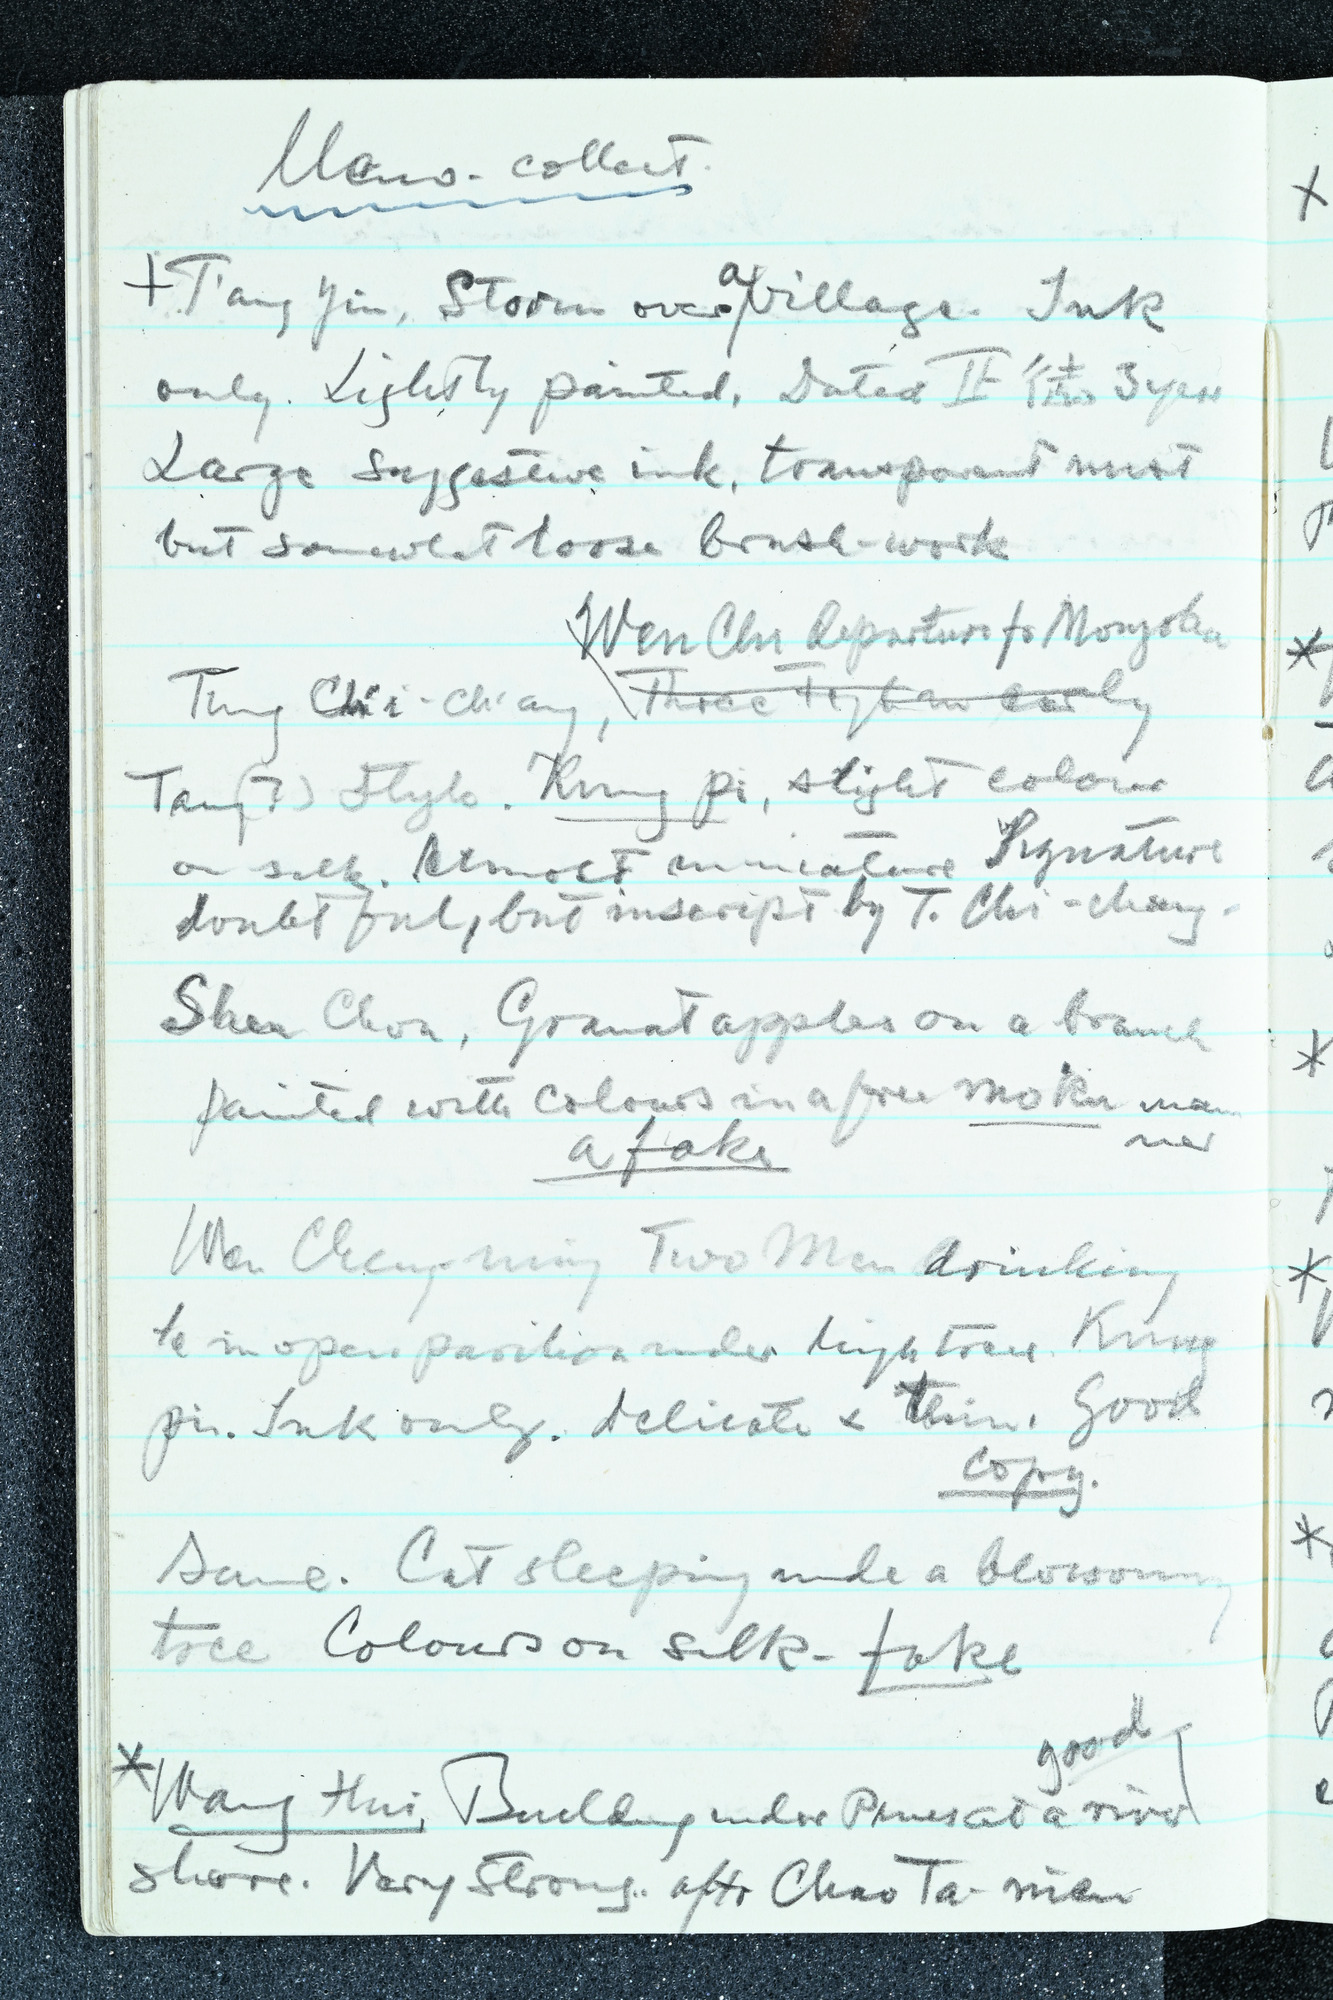 Ueno- collect.
+ T'ang Yin, Storm over a village. Ink
only. Lightly painted. Dated 3 year
Large suggestive ink, transparent mist
but somewhat loose brush-work
Wen Chi departure fr Mongolia
Ting Chi'i-ch'ang, Three early
Tang (?) Style. Kung pi, slight colour
on silk. Almost miniature Signature
doubtful, but inscript by T. Chi-chang.
Shen Chou, Granatapples on a branch
painted with colours in a free moku man
ner
a fake
Wen Cheng-ming Two Men drinking
te in open pavilion under high trees. Kung
pi. Ink only. Delicate & thin. Good
copy.
Same. Cat sleeping unde a blossoming
tree Colours on silk- fake
good
* Wang Hui, Building under Pines at a river
shore. Very Strong. aftr Chao Ta-nien